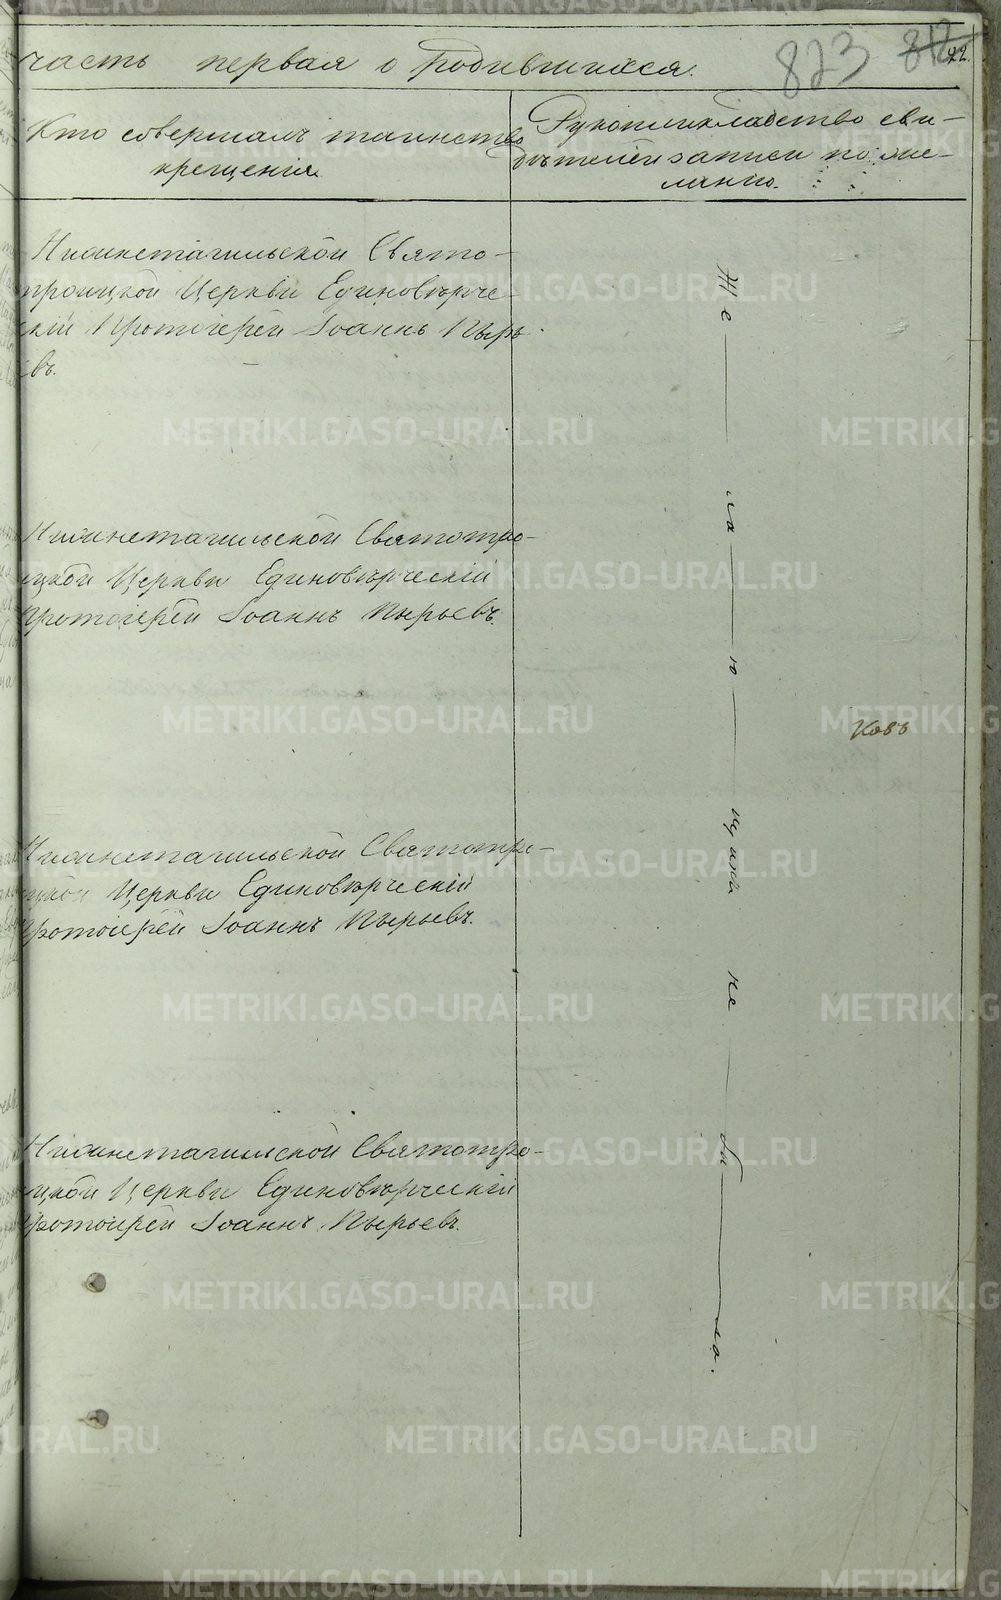 часть первая о родившихся.
823 812 22.
Кто совершалъ таинство
крещенія
Рукоприкладство сви-
дѣтелей записи по же-
ланію.
Нижнетагильской Свято-
троицкой Церкви Единовѣрче-
скій Протоіерей Іоаннъ Пырь-
евъ.
Нижнетагильской Святотро-
ицкой Церкви Единовѣрческій
Протоіерей Іоаннъ Пырьевъ.
Нижнетагильской Святотро-
ицкой Церкви Единовѣрческій
Протоіерей Іоаннъ Пырьевъ.
Нижнетагильской Святотро-
ицкой Церкви Единовѣрческій
Протоіерей Іоаннъ Пырьевъ.
Же ла ю щихъ не бы ло.
Ковъ
METRIKI.GASO-URAL.RU